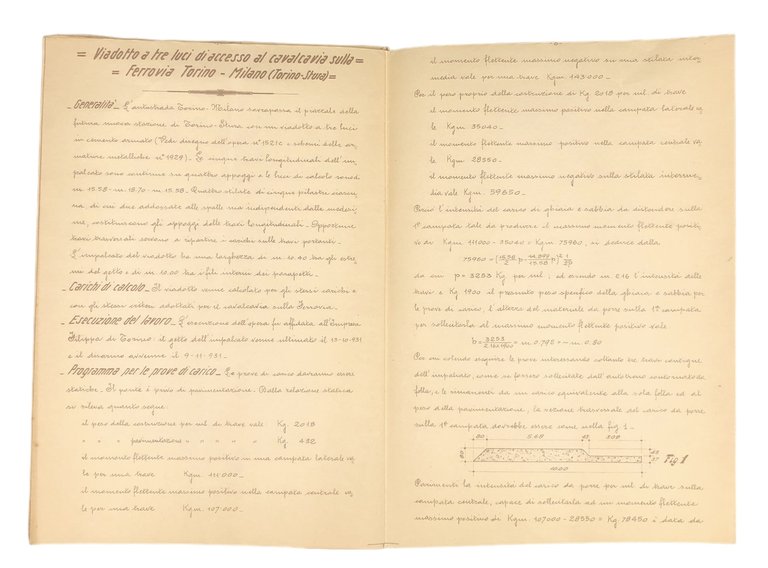 = Viadotto a tre luci di accesso al cavalcavia sulla =
= Ferrovia Torino - Milano (Torino-Stura) =
- Generalità - L'autostrada Torino-Milano sorpassa il piazzale della
futura nuova stazione di Torino-Stura con un viadotto a tre luci
in cemento armato (Vedi disegno dell'opera n° 1521c e schemi delle ar_
mature metalliche n° 1929). Le cinque travi longitudinali dell'im_
palcato sono continue su quattro appoggi e le luci di calcolo sono di
m. 15.58 - m. 18.70 - m. 15.58 - Quattro stilate di cinque pilastri ciascu_
na, di cui due addossate alle spalle ma independenti dalle medesi_
me, costituiscono gli appoggi delle travi longitudinali - Opportune
travi trasversali servono a ripartire i carichi sulle travi portanti -
L'impalcato del viadotto ha una larghezza di m. 10.40 tra gli estre_
mi del getto e di m. 10.00 tra i fili interni dei parapetti -
- Carichi di calcolo - Il viadotto venne calcolato per gli stessi carichi e
con gli stessi criteri adottati per il cavalcavia sulla Ferrovia -
- Esecuzione del lavoro - L'esecuzione dell'opera fu affidata all'Impresa
Filippa di Torino: il getto dell'impalcato venne ultimato il 13-10-931
e il disarmo avvenne il 9-11-931 -
- Programma per le prove di carico - Le prove di carico dovranno essere
statiche - Il ponte è privo di pavimentazione - Dalla relazione statica
si rileva quanto segue:
il peso della costruzione per ml. di trave vale Kg. 2018
" " " pavimentazione " " " " " Kg. 432
il momento flettente massimo positivo in una campata laterale va_
le per una trave Kgm. 111.000 -
il momento flettente massimo positivo nella campata centrale va_
le per una trave Kgm. 107.000 -
il momento flettente massimo negativo su una stilata inter_
media vale per una trave Kgm. 143.000 -
Per il peso proprio della costruzione di Kg. 2018 per ml. di trave
il momento flettente massimo positivo nella campata laterale va_
le Kgm. 35040 -
il momento flettente massimo positivo nella campata centrale va_
le Kgm. 28550 -
il momento flettente massimo negativo sulla stilata interme_
dia vale Kgm. 59850 -
Perciò l'intensità del carico di ghiaia e sabbia da distendere sulla
1ª campata tale da produrre il massimo momento flettente positi_
vo di Kgm. 111000 - 35040 = Kgm. 75960, si deduce dalla
75960 =
da cui p = 3253 Kg. per ml., ed essendo m. 2.16 l'intensità delle
travi e Kg. 1900 il presunto peso specifico della ghiaia e sabbia per
le prove di carico, l'altezza del materiale da porre sulla 1ª campata
per sollecitarla al massimo momento flettente positivo vale
h = 3253 / 2.16x1900 = m. 0.792 = ~ m. 0.80
Per cui volendo eseguire le prove interessando soltanto tre travi contigue
dell'impalcato, come se fossero sollecitate dall'autotreno contornato da
folla, e le rimanenti da un carico equivalente alla sola folla ed al
peso della pavimentazione, la sezione trasversale del carico da porre
sulla 1ª campata dovrebbe essere come nella fig. 1 -
80 5.68 43 3.09
80 43 37 Fig 1
10.00
Parimenti la intensità del carico da porre per ml. di trave sulla
campata centrale, capace di sollecitarla ad un momento flettente
massimo positivo di Kgm. 107000 - 28550 = Kg. 78450 è data da